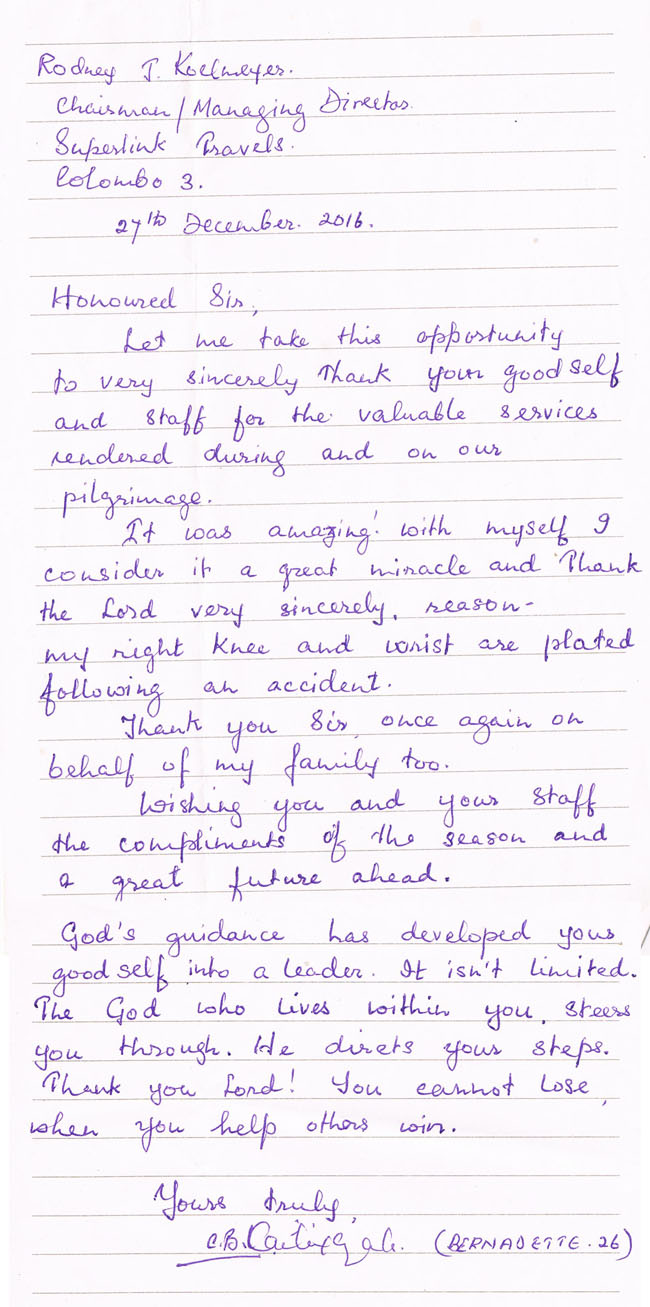 Rodney J. Koelmeyer.
Chairman/Managing Director.
Superlink Travels.
Colombo 3.
27th December. 2016.
Honoured Sir,
Let me take this opportunity
to very sincerely Thank your good self
and staff for the valuable services
rendered during and on our
pilgrimage.
It was amazing! with myself I
consider it a great miracle and Thank
the Lord very sincerely, reason-
my right knee and wrist are plated
following an accident.
Thank you Sir, once again on
behalf of my family too.
Wishing you and your staff
the compliments of the season and
a great future ahead.
God's guidance has developed your
good self into a leader. It isn't limited.
The God who lives within you, steers
you through. He direts your steps.
Thank you Lord! You cannot lose,
when you help others win.
Yours truly,
C.B. (BERNADETTE. 26)